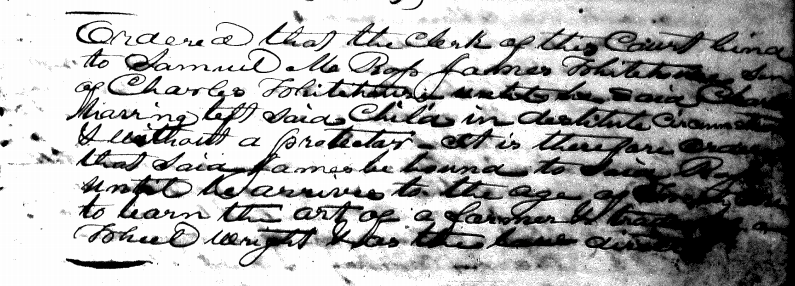 Ordered that the Clerk of this Court bind
to Samuel Mc Ross James Whitehouse Son
of Charles Whitehouse until he said Charles
having left said Child in destitute Circumstances
& without a protector. It is therefore ordered
that said James be bound to said Ross
until he arrives to the age of Twenty one
to learn the art of a farmer & trade of a
Wheel Wright & as the law directs